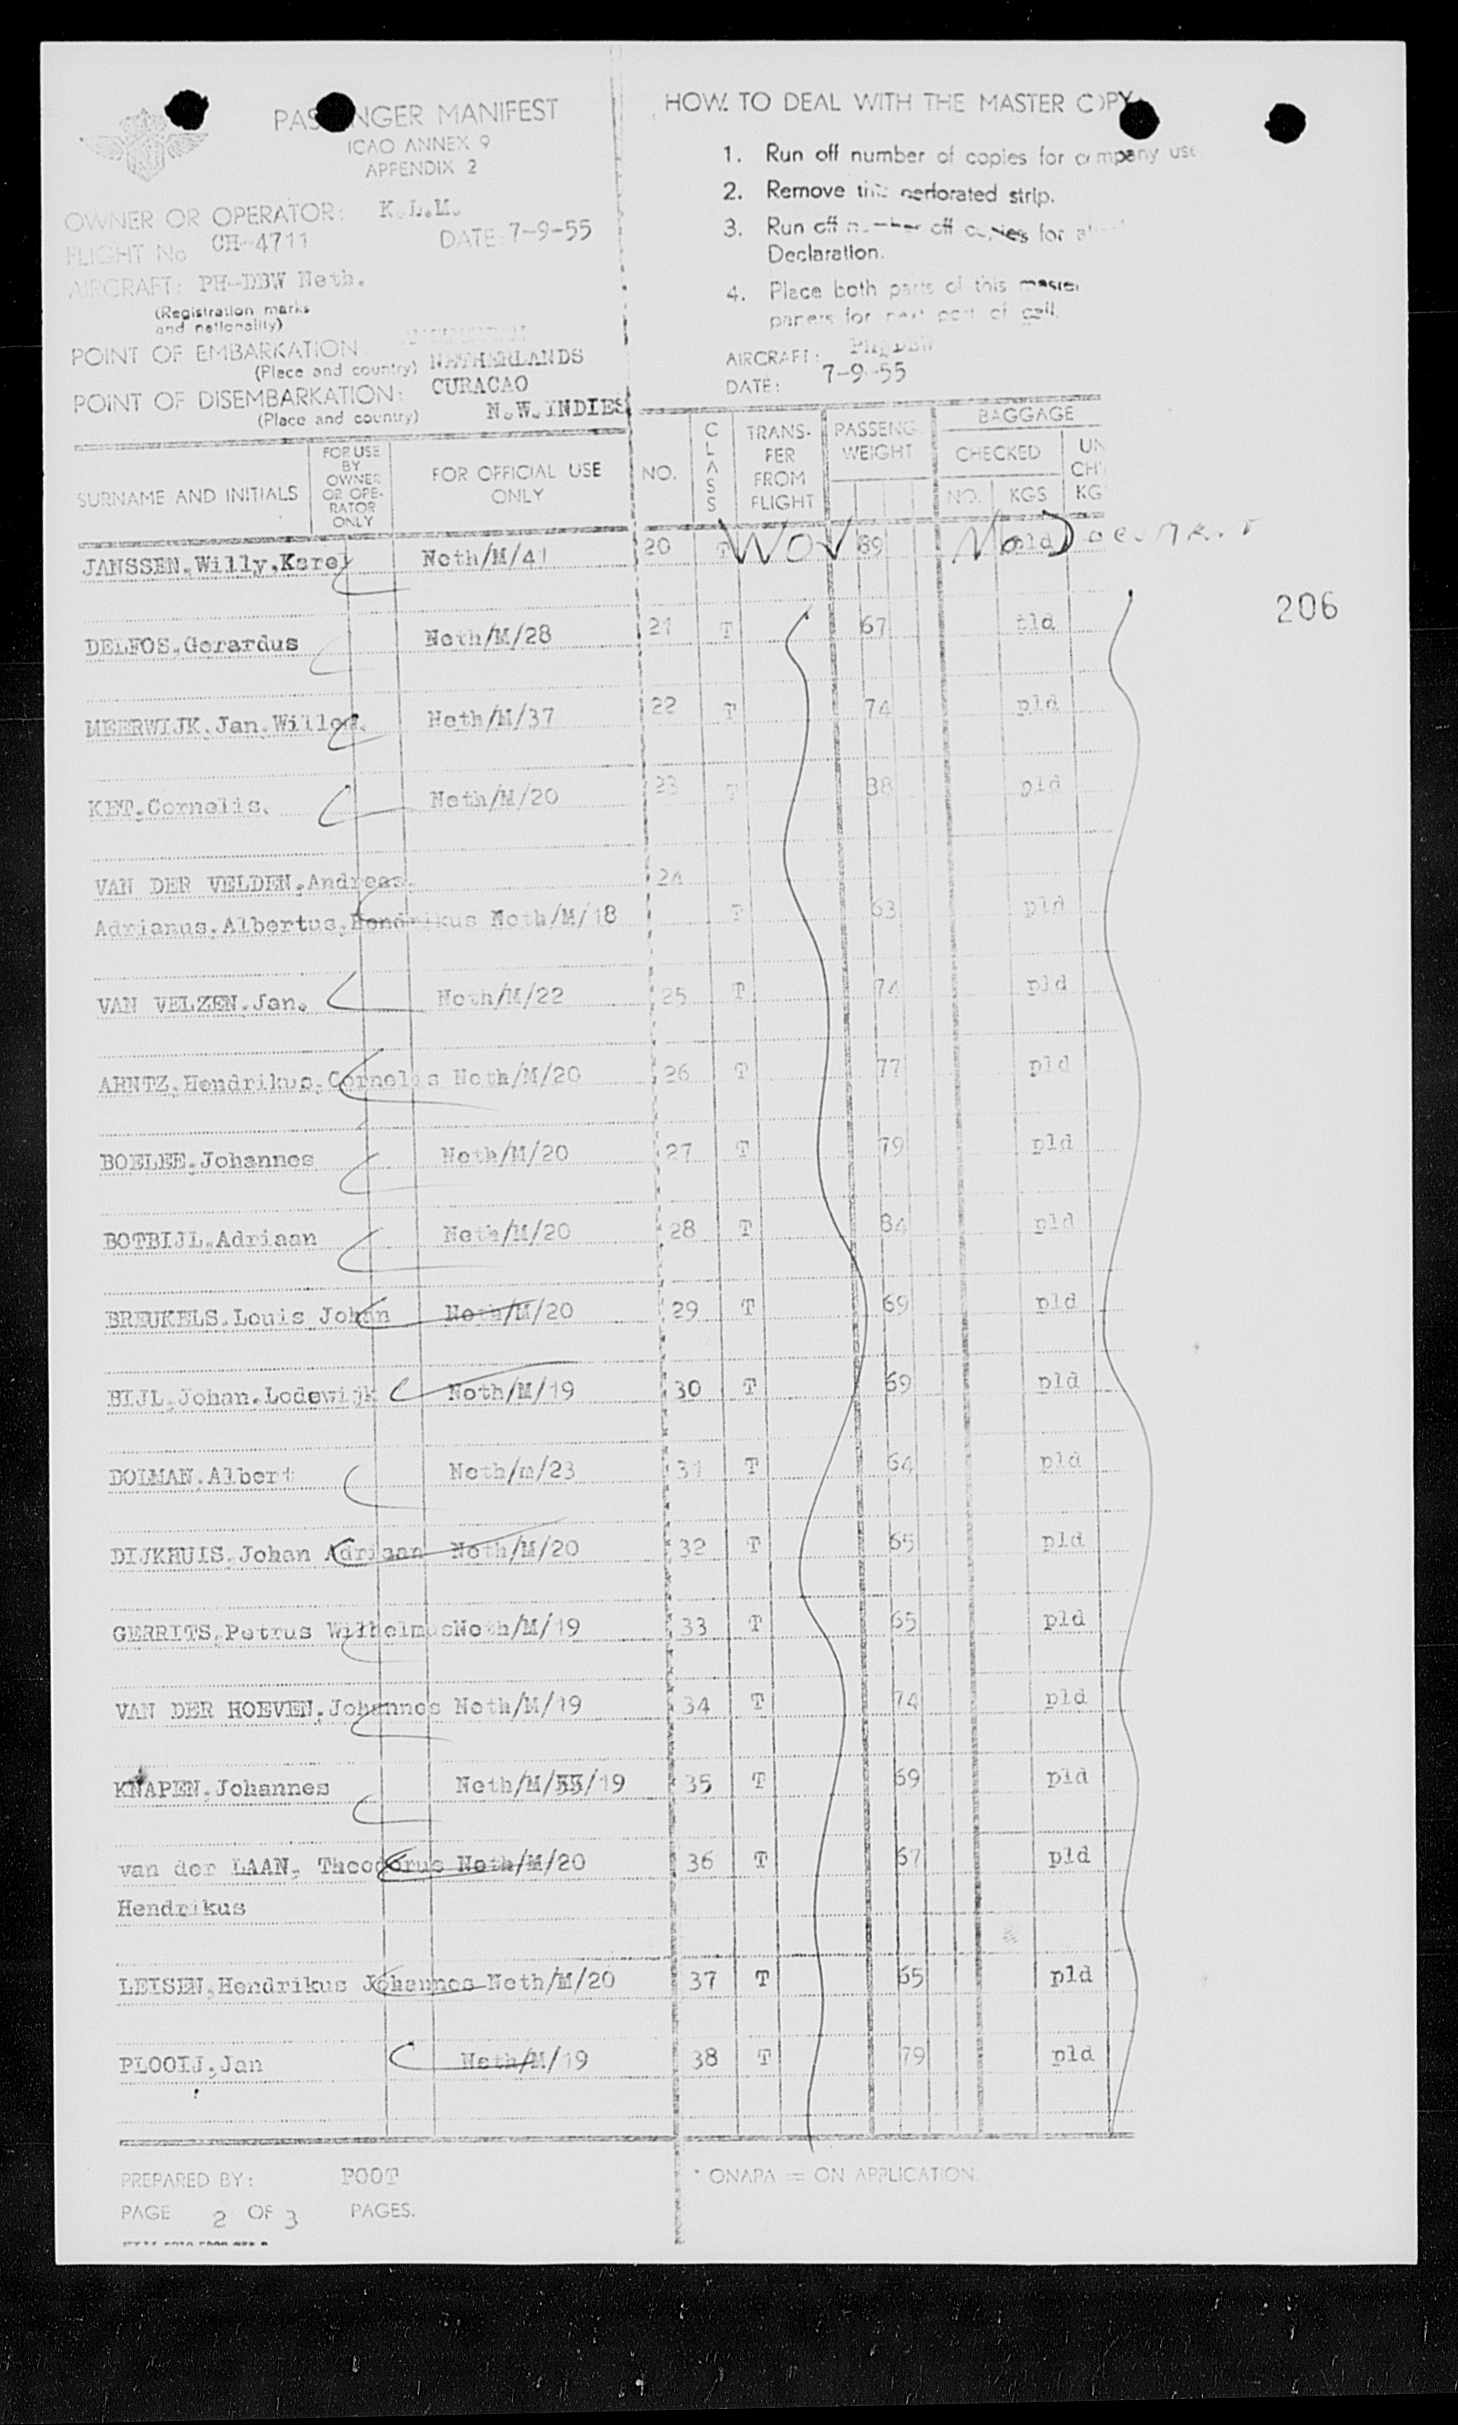 PASSENGER MANIFEST
ICAO ANNEX 9
APPENDIX 2
OWNER OR OPERATOR: K.L.M.
FLIGHT No CH-4711 DATE: 7-9-55
AIRCRAFT: PH-DBW Neth.
(Registration marks
and nationality)
POINT OF EMBARKATION
(Place and country) NETHERLANDS
POINT OF DISEMBARKATION: CURACAO
(Place and country) N.W.INDIES
HOW TO DEAL WITH THE MASTER COPY
1. Run off number of copies for company use
2. Remove this perforated strip.
3. Run off number off copies for
Declaration.
4. Place both parts of this master
papers for next port of call.
AIRCRAFT: PH-DBW
DATE: 7-9-55
SURNAME AND INITIALS
FOR USE
BY
OWNER
OR OPE-
RATOR
ONLY
FOR OFFICIAL USE
ONLY
NO.
CLASS
TRANS-
FER
FROM
FLIGHT
PASSENG
WEIGHT
BAGGAGE
CHECKED
NO. KGS
UN
CH
KG
JANSSEN.Willy.Karel Neth/M/41 20 T WOV 89 No Document pld
206
DELFOS.Gerardus Neth/M/28 21 T 67 pld
MEERWIJK.Jan.Willem. Neth/M/37 22 T 74 pld
KET.Cornelis. Neth/M/20 23 T 88 pld
VAN DER VELDEN.Andreas. 24
Adrianus.Albertus.Hendrikus Neth/M/18 T 63 pld
VAN VELZEN.Jan. Neth/M/22 25 T 74 pld
ARNTZ.Hendrikus.Cornelis Neth/M/20 26 T 77 pld
BOELEE.Johannes Neth/M/20 27 T 79 pld
BOTBIJL.Adriaan Neth/M/20 28 T 84 pld
BREUKELS.Louis Johan Neth/M/20 29 T 69 pld
BIJL.Johan.Lodewijk Neth/M/19 30 T 69 pld
DOLMAN.Albert Neth/m/23 31 T 64 pld
DIJKHUIS.Johan Adriaan Neth/M/20 32 T 65 pld
GERRITS.Petrus WilhelmusNeth/M/19 33 T 65 pld
VAN DER HOEVEN.Johannes Neth/M/19 34 T 74 pld
KNAPEN.Johannes Neth/M/33/19 35 T 69 pld
van der LAAN. Theodorus Neth/M/20 36 T 67 pld
Hendrikus
LEISEN.Hendrikus Johannes Neth/M/20 37 T 65 pld
PLOOIJ.Jan Neth/M/19 38 T 79 pld
PREPARED BY: FOOT
PAGE 2 OF 3 PAGES.
* ONAPA = ON APPLICATION.